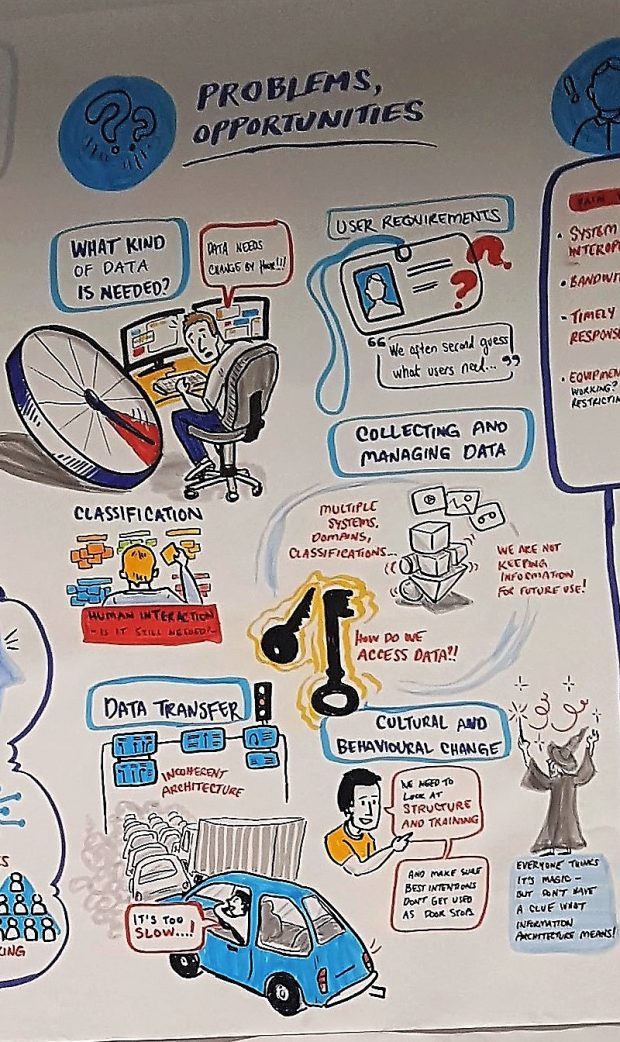 ??
PROBLEMS,
OPPORTUNITIES
!
WHAT KIND
OF DATA
IS NEEDED?
DATA NEEDS
CHANGE BY HOUR!!!
USER REQUIREMENTS
??
"We often second guess
what users need..."
COLLECTING AND
MANAGING DATA
CLASSIFICATION
HUMAN INTERACTION
- IS IT STILL NEEDED? -
MULTIPLE
SYSTEMS,
DOMAINS,
CLASSIFICATIONS...
WE ARE NOT
KEEPING
INFORMATION
FOR FUTURE USE!
HOW DO WE
ACCESS DATA?!
DATA TRANSFER
INCOHERENT
ARCHITECTURE
IT'S TOO
SLOW....!
CULTURAL AND
BEHAVIOURAL CHANGE
WE NEED TO
LOOK AT
STRUCTURE
AND TRAINING
AND MAKE SURE
BEST INTENTIONS
DON'T GET USED
AS DOOR STOP.
EVERYONE THINKS
IT'S MAGIC -
BUT DON'T HAVE
A CLUE WHAT
INFORMATION
ARCHITECTURE MEANS!
• SYSTEM
• TIMELY
WORKING?